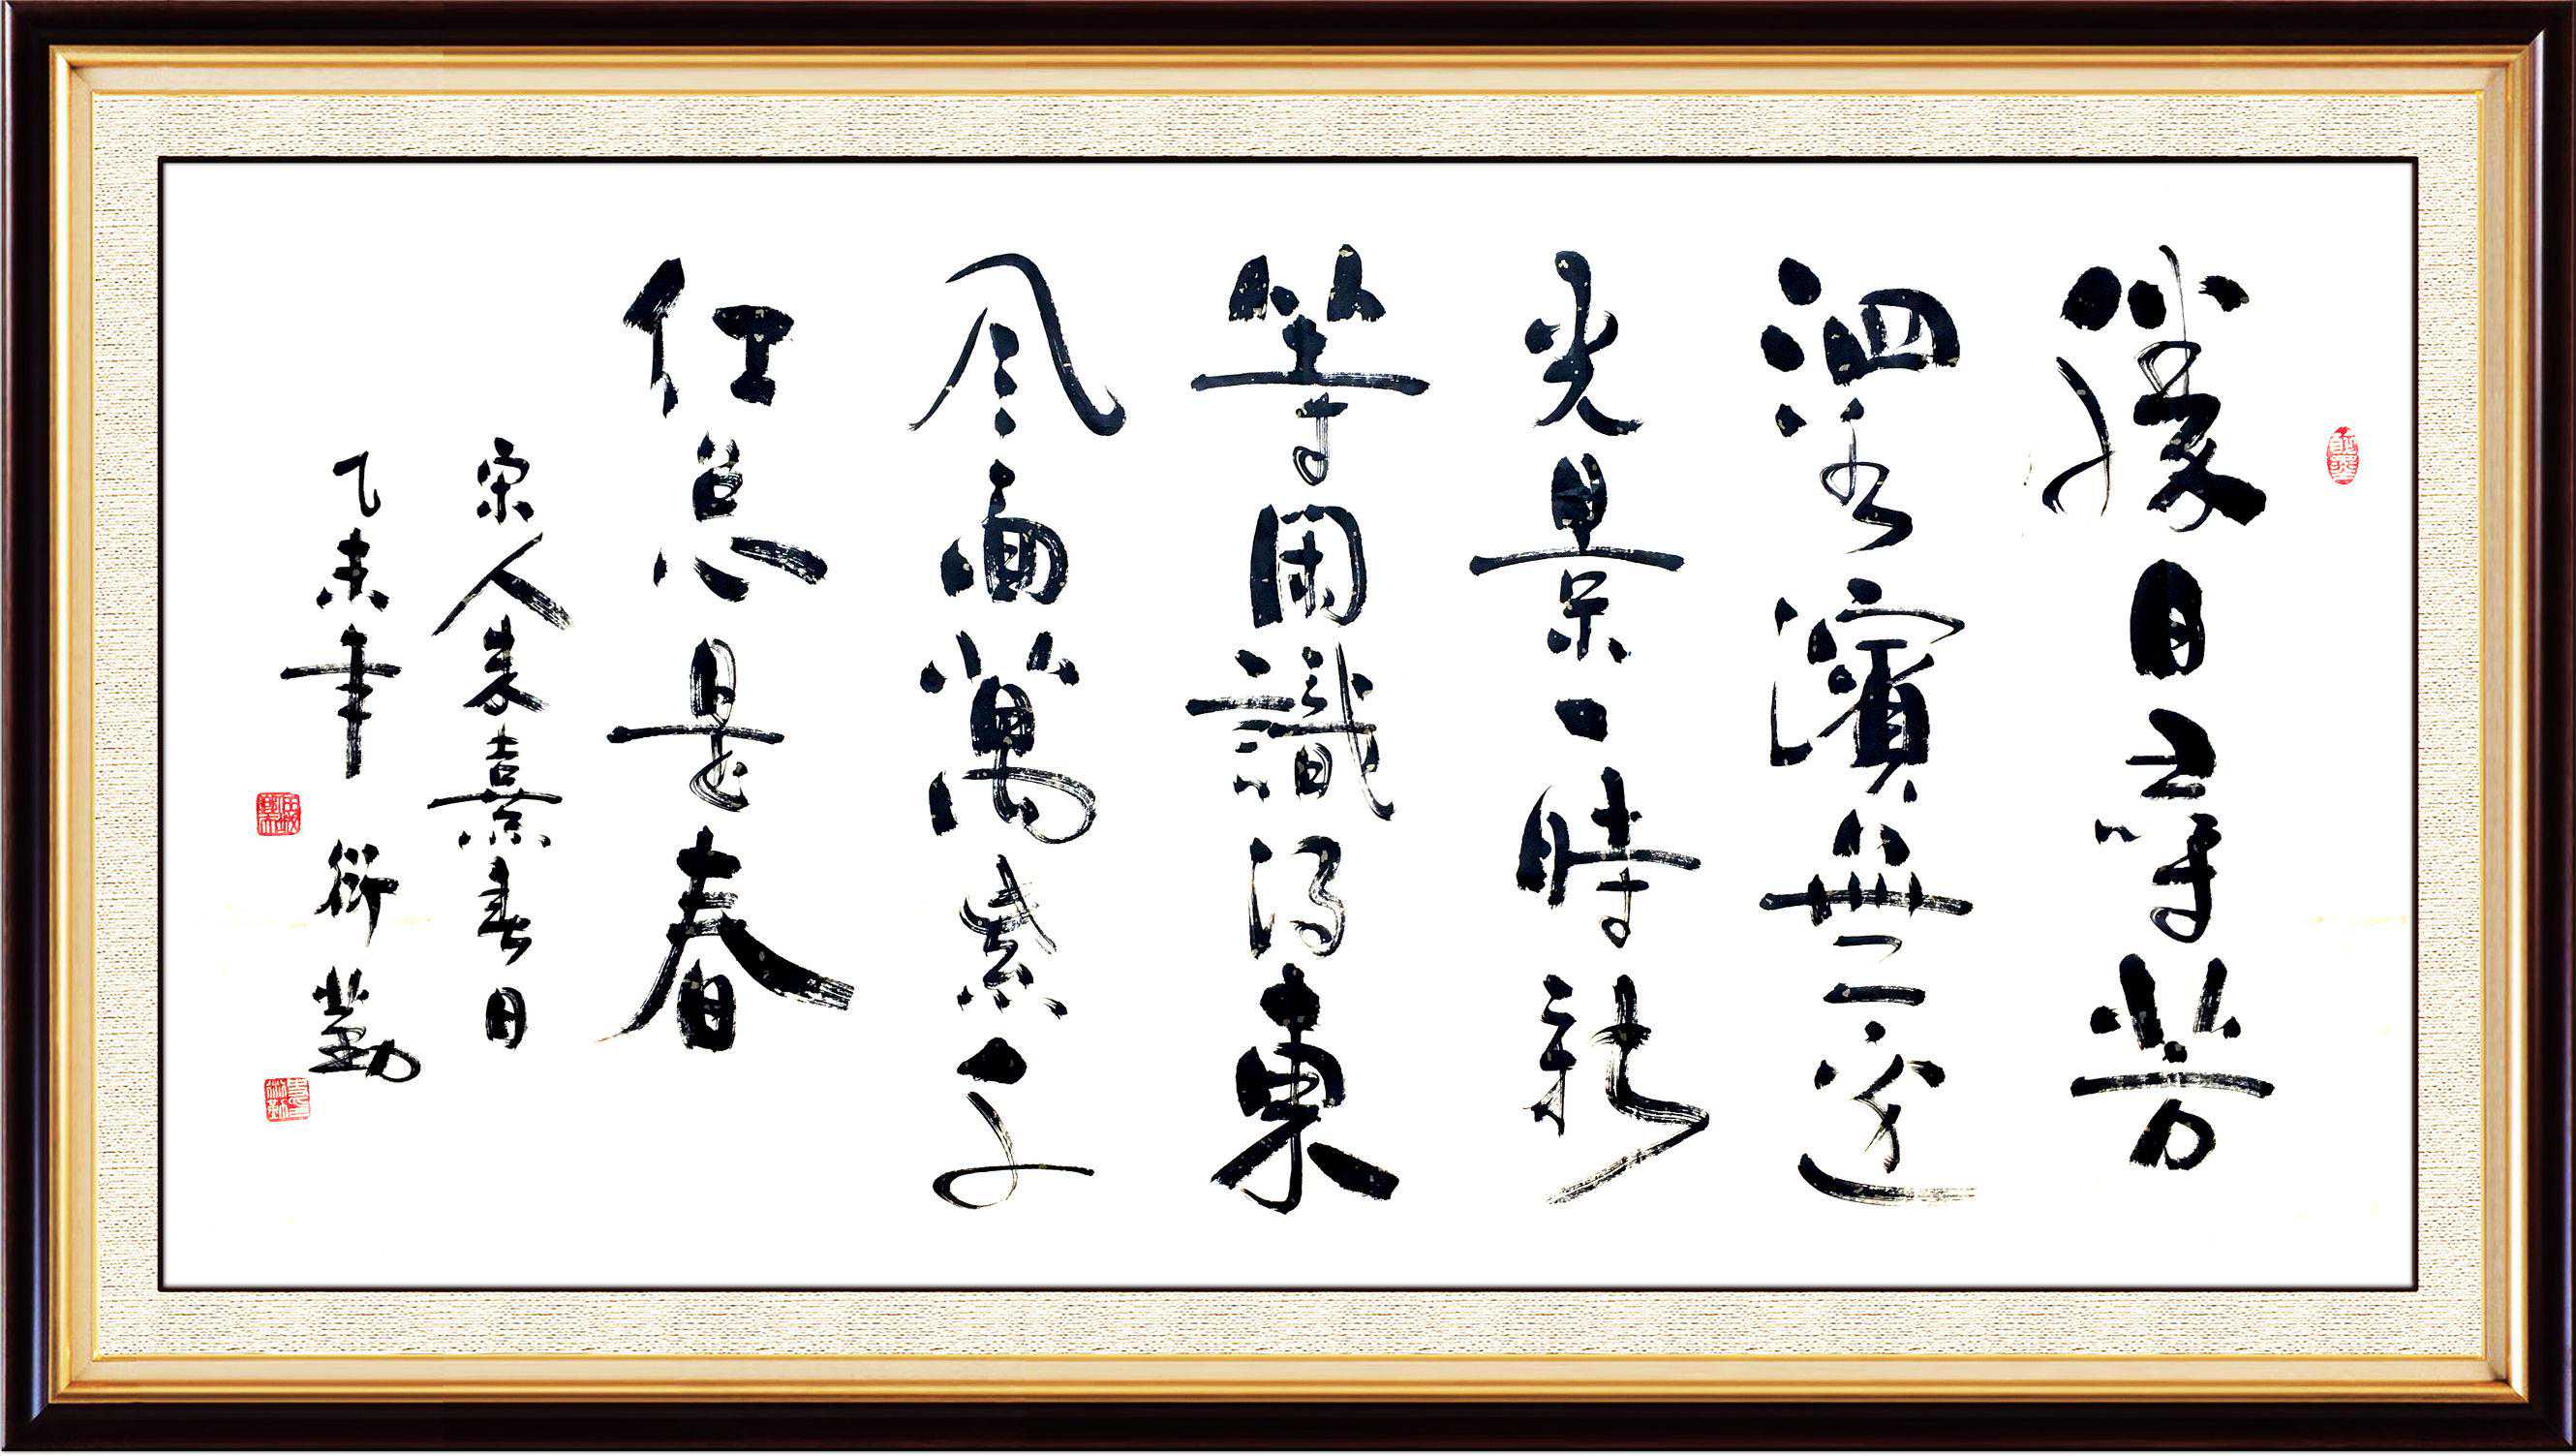 勝日尋芳
泗水濱無邊
光景一時新
等閑識得東
風面萬紫千
紅總是春
宋人朱熹春日
乙未年 衍勤